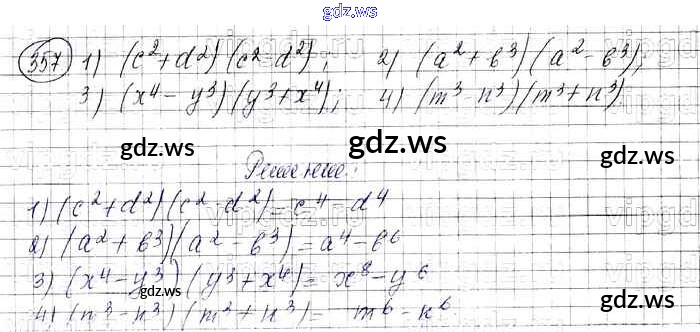 gdz.ws
357 1) (c²+d²)(c²-d²); 2) (a²+b³)(a²-b³);
3) (x⁴-y³)(y³+x⁴); 4) (m³-n³)(m³+n³)
gdz.ws gdz.ws gdz.ws
Решение:
1) (c²+d²)(c²-d²)=c⁴-d⁴
2) (a²+b³)(a²-b³)=a⁴-b⁶
3) (x⁴-y³)(y³+x⁴)=x⁸-y⁶
gdz.ws gdz.ws
4) (m³-n³)(m³+n³)= m⁶-n⁶